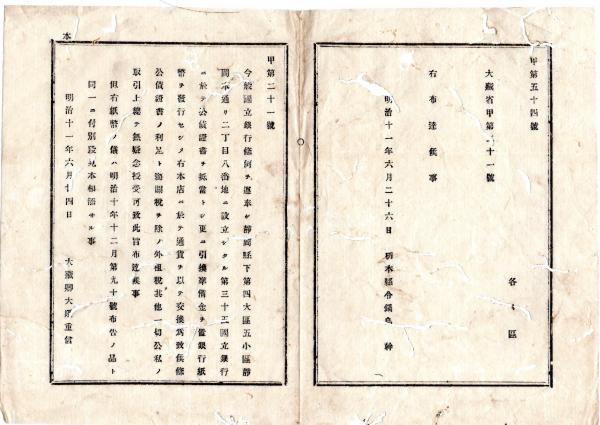 甲第五十四號
各區
大藏省甲第二十一號
右布達候事
明治十一年六月二十六日 栃木縣令鍋島 幹
甲第二十一號
今般國立銀行條例ヲ遵奉シ靜岡縣下第四大區五小區靜
岡本通リ二丁目八番地ニ設立シタル第三十五國立銀行
ニ於テ公債證書ヲ抵當トシ更ニ引換準備金ヲ置銀行紙
幣ヲ發行セシメ右本店ニ於テ通貨ヲ以テ交換爲致候條
公債證書ノ利足ト海關稅ヲ除ノ外租稅其他一切公私ノ
取引上總テ無疑念授受可致此旨布達候事
但右紙幣ノ儀ハ明治十年十二月第九十號布告ノ品ト
同一ニ付別段見本相添サル事
明治十一年六月廿四日 大藏卿大隈重信
本